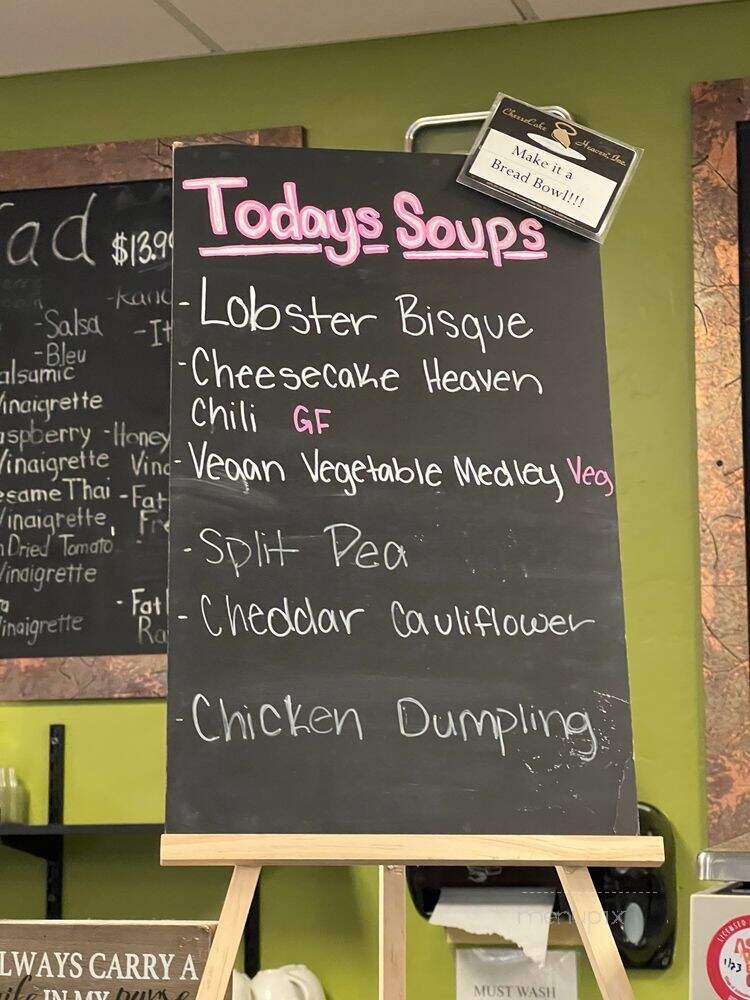 CheeseCake Heaven, Inc.
Make it a
Bread Bowl!!!
Todays Soups
-Lobster Bisque
-Cheesecake Heaven
Chili GF
-Vegan Vegetable Medley Veg
-Split Pea
-Cheddar Cauliflower
-Chicken Dumpling
$13.9
-Salsa
-Bleu
-It
Vinaigrette
-Honey
Vinaigrette
Thai
-Fat
Vinaigrette
Dried Tomato
Vinaigrette
-Fat
Vinaigrette
Ra
LWAYS CARRY A
IN MY purse
MUST WASH
menupix